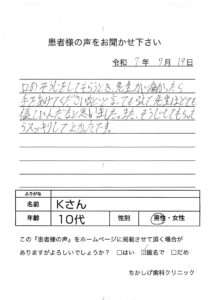 患者様の声をお聞かせ下さい
令和 7年 7月 19日
口のそうじをしてもらうとき、先生が痛かったら
手をあげてくださいねと言ってもらえて先生はとても
優しい人だと思いました。また、そうじしてもらって
スッキリしてよかったです。
ふりがな
名前 Kさん
年齢 10代 性別 男性・女性
この『患者様の声』をホームページに掲載させて頂く場合が
ありますがよろしいでしょうか？ □はい ☑匿名で □だめ
ちかしげ歯科クリニック